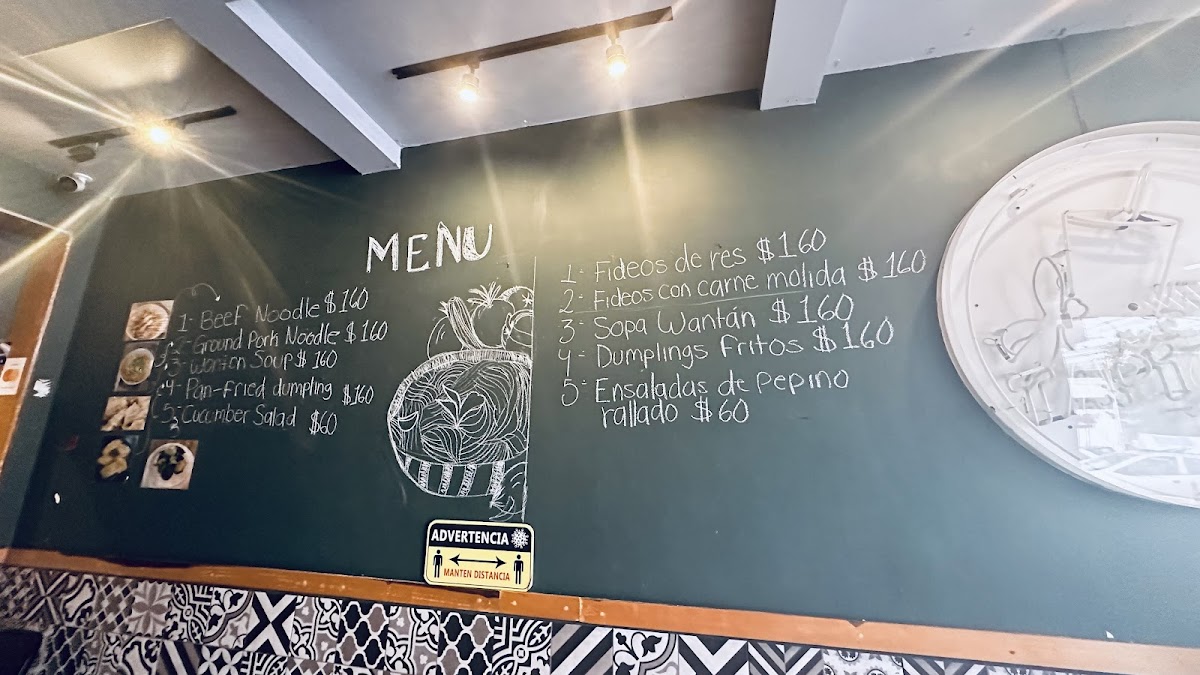 MENU
1- Beef Noodle $160
2- Ground Pork Noodle $160
3- Wantan Soup $160
4- Pan-fried dumpling $160
5- Cucumber Salad $60
1- Fideos de res $160
2- Fideos con carne molida $160
3- Sopa Wantán $160
4- Dumplings Fritos $160
5- Ensaladas de pepino
rallado $60
ADVERTENCIA
MANTEN DISTANCIA